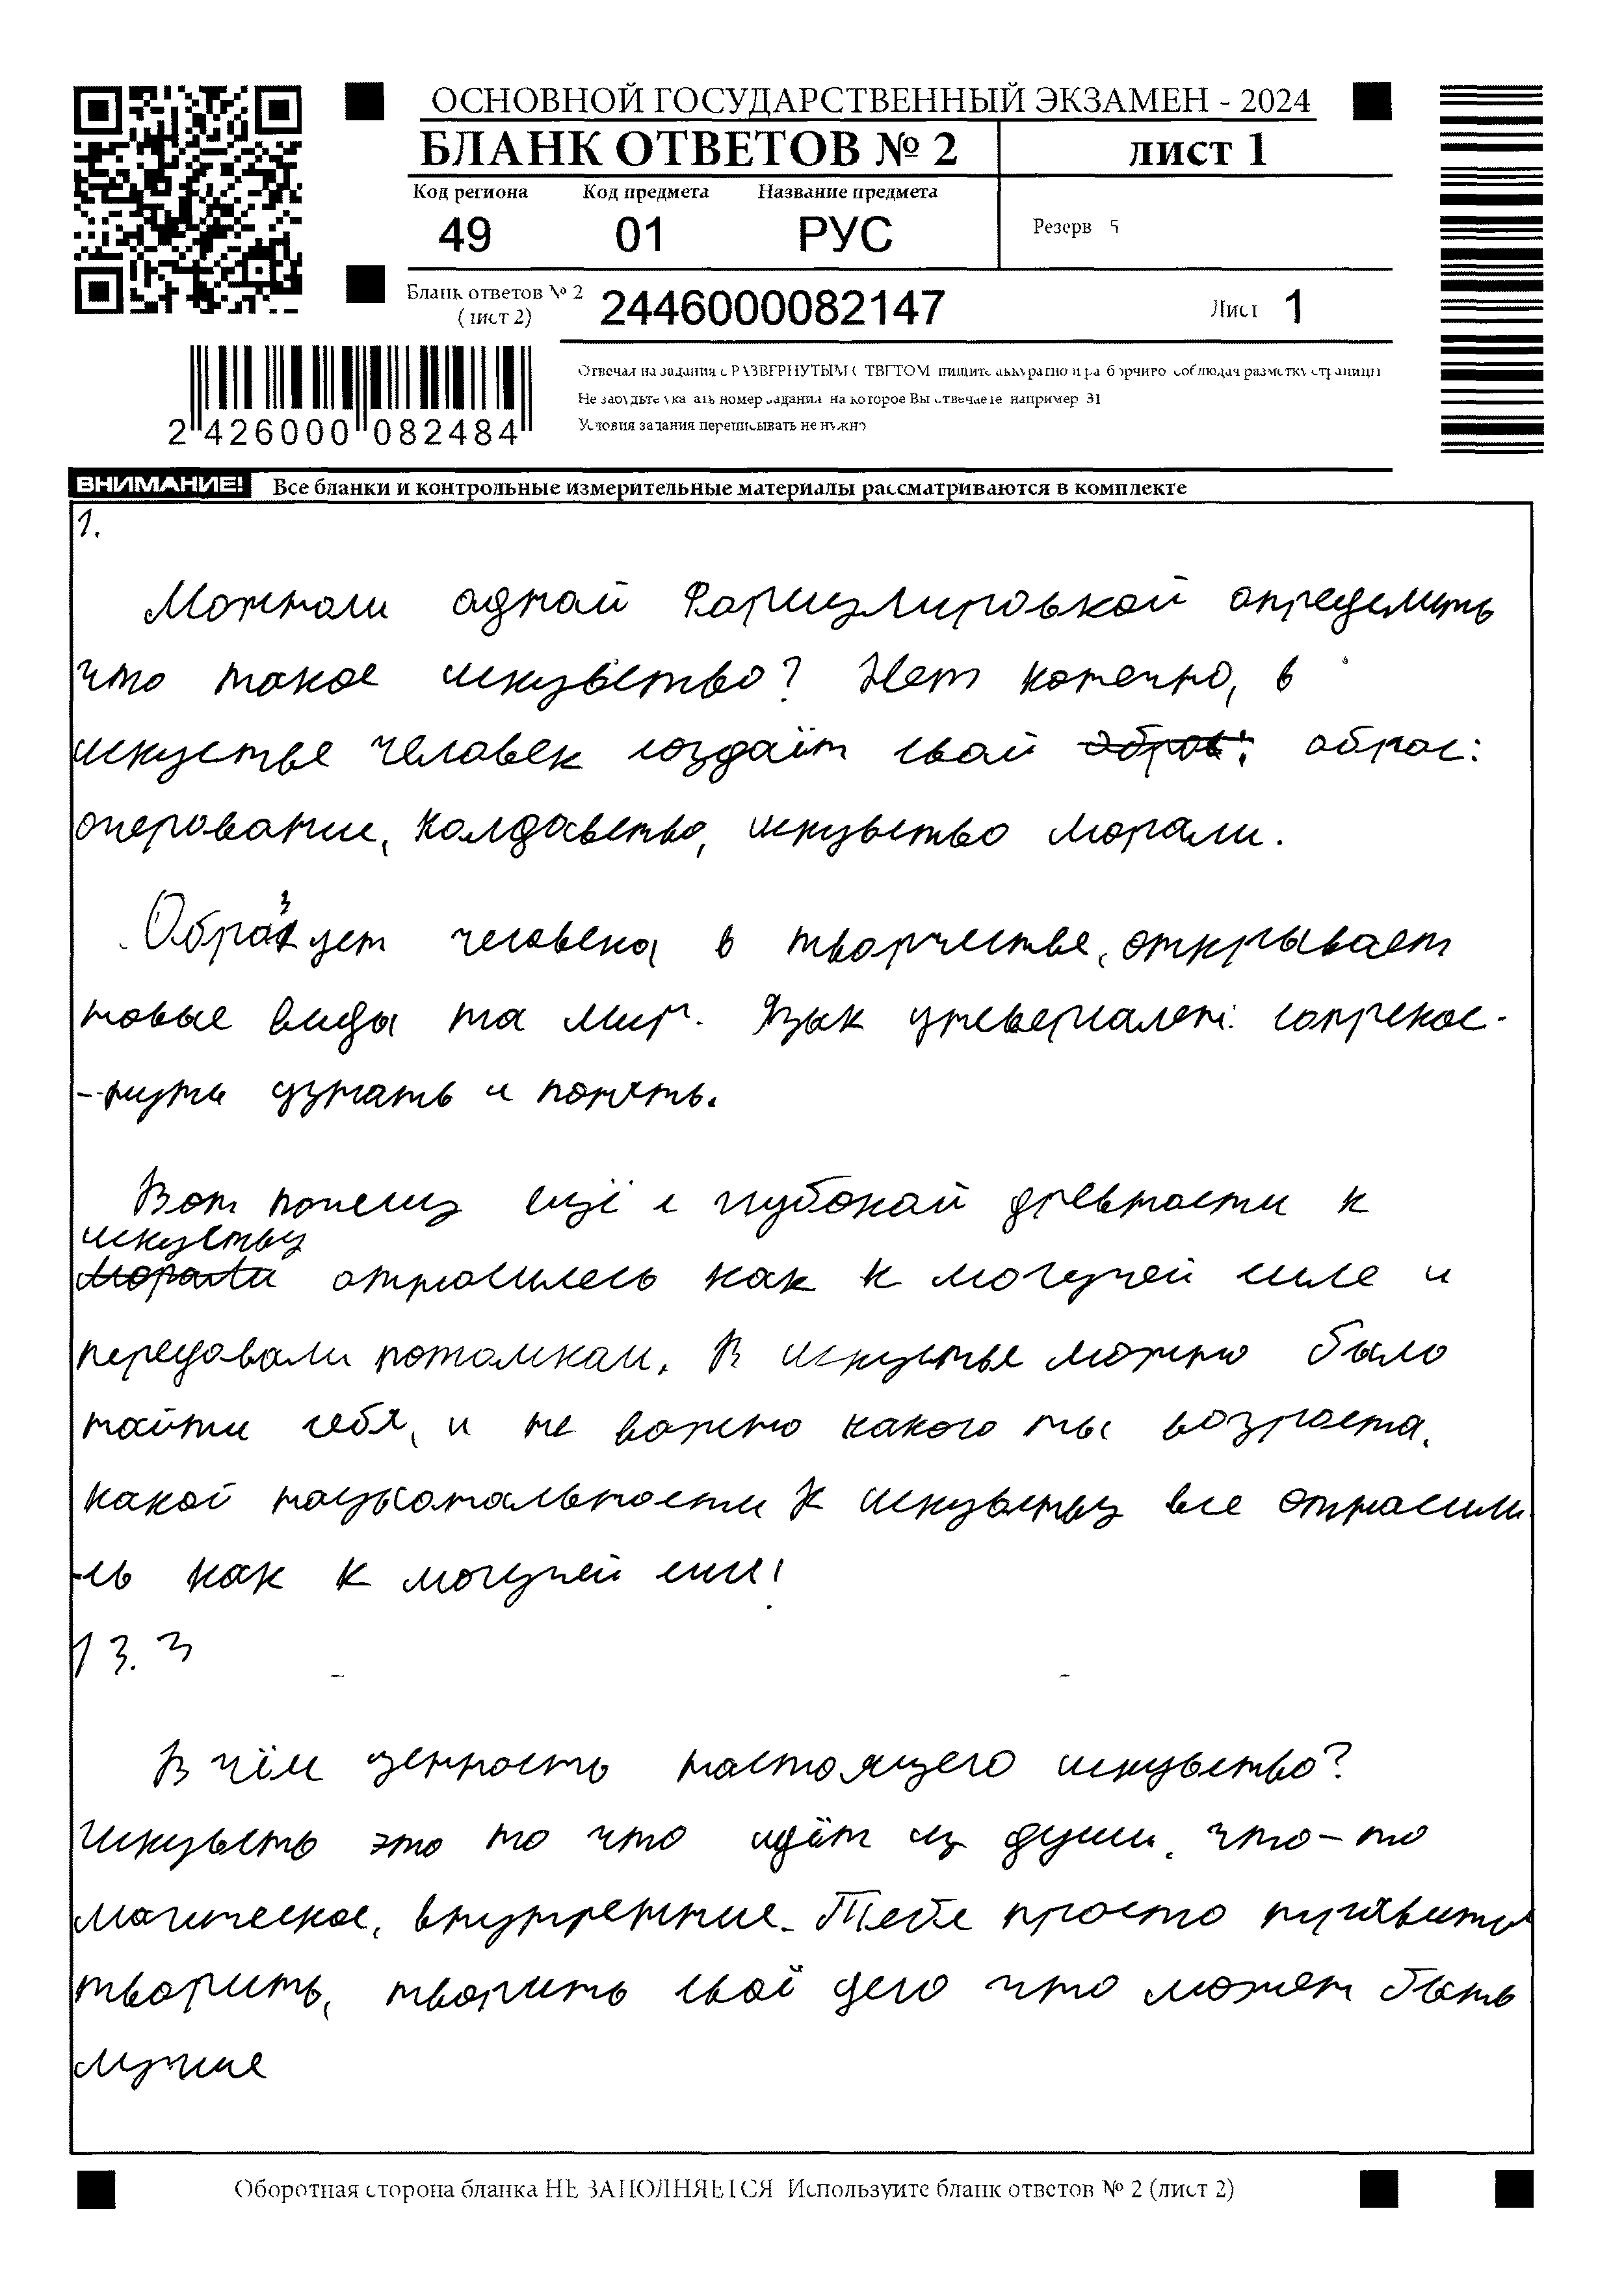 ОСНОВНОЙ ГОСУДАРСТВЕННЫЙ ЭКЗАМЕН - 2024
БЛАНК ОТВЕТОВ № 2 лист 1
Код региона Код предмета Название предмета
49 01 РУС
Резерв 5
Бланк ответов № 2
(лист 2)
2446000082147
Лист 1
Отвечая на задания с РАЗВЕРНУТЫМ ОТВЕТОМ пишите аккуратно и разборчиво соблюдая разметку страницы
Не забудьте указать номер задания на которое Вы отвечаете например 31
Условия задания переписывать не нужно
2 426000 082484
ВНИМАНИЕ! Все бланки и контрольные измерительные материалы рассматриваются в комплекте
1.
Можноли адной Формулировькой определить
что такое искувство? Нет конечно, в
искустве человек создаёт свой оброс:
оперование, колдовство, искувство морали.
Образует человека в творчестве, открывает
новые виды на мир. Язык унсверсален: сопрекос-
-нуть думать и понять.
Вот почему ещё с глубокой древности к
искуству
отросились как к могучей силе и
передовали потомкам. В искустве можно было
найти себя, и не важно какого ты возроста,
какой нацыональности к искувству все отрасили
-сь как к могучей силе!
13.3
В чём ценность настоящего искувство?
Искувсть это то что идёт из души, что-то
магическое, внутренние. Тебе просто нравиться
творить, творить своё дело что может быть
лучше
Оборотная сторона бланка НЕ ЗАПОЛНЯЕТСЯ Используйте бланк ответов № 2 (лист 2)